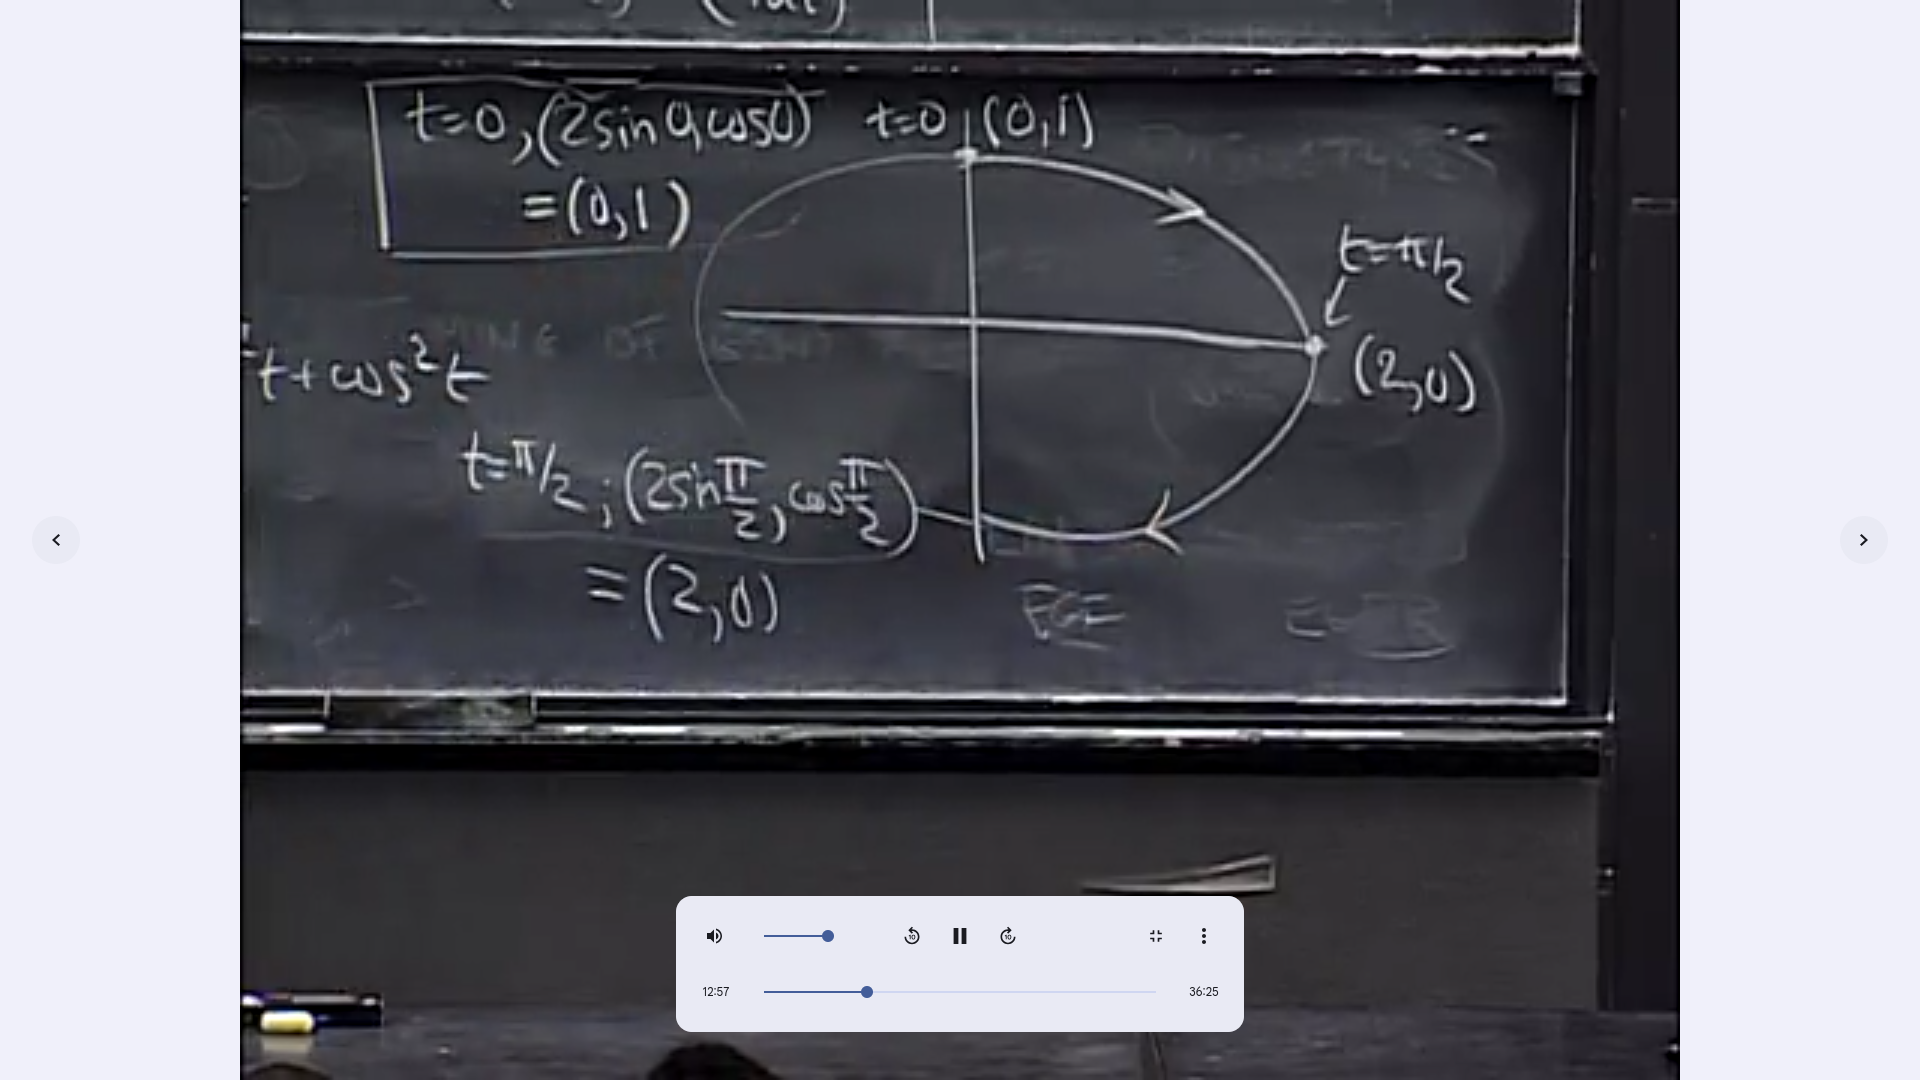 t=0, (2sin0, cos0)
=(0,1)
t=0
(0,1)
t=π/2
(2,0)
t+cos²t
t=π/2; (2sin π/2, cos π/2)
=(2,0)
12:57
36:25